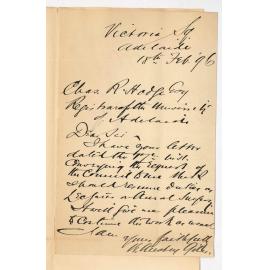 Victoria Sq
Adelaide
18th Feb 96
Chas. R. Hodge Esq
Registrar of the University
of Adelaide
Dear Sir
I have your letter
dated the 17th inst.
conveying the request of
the Council that
I should resume duties as
Lecturer in Aural Surgery
It will give me pleasure
to continue the work as usual
I am
Yours faithfully